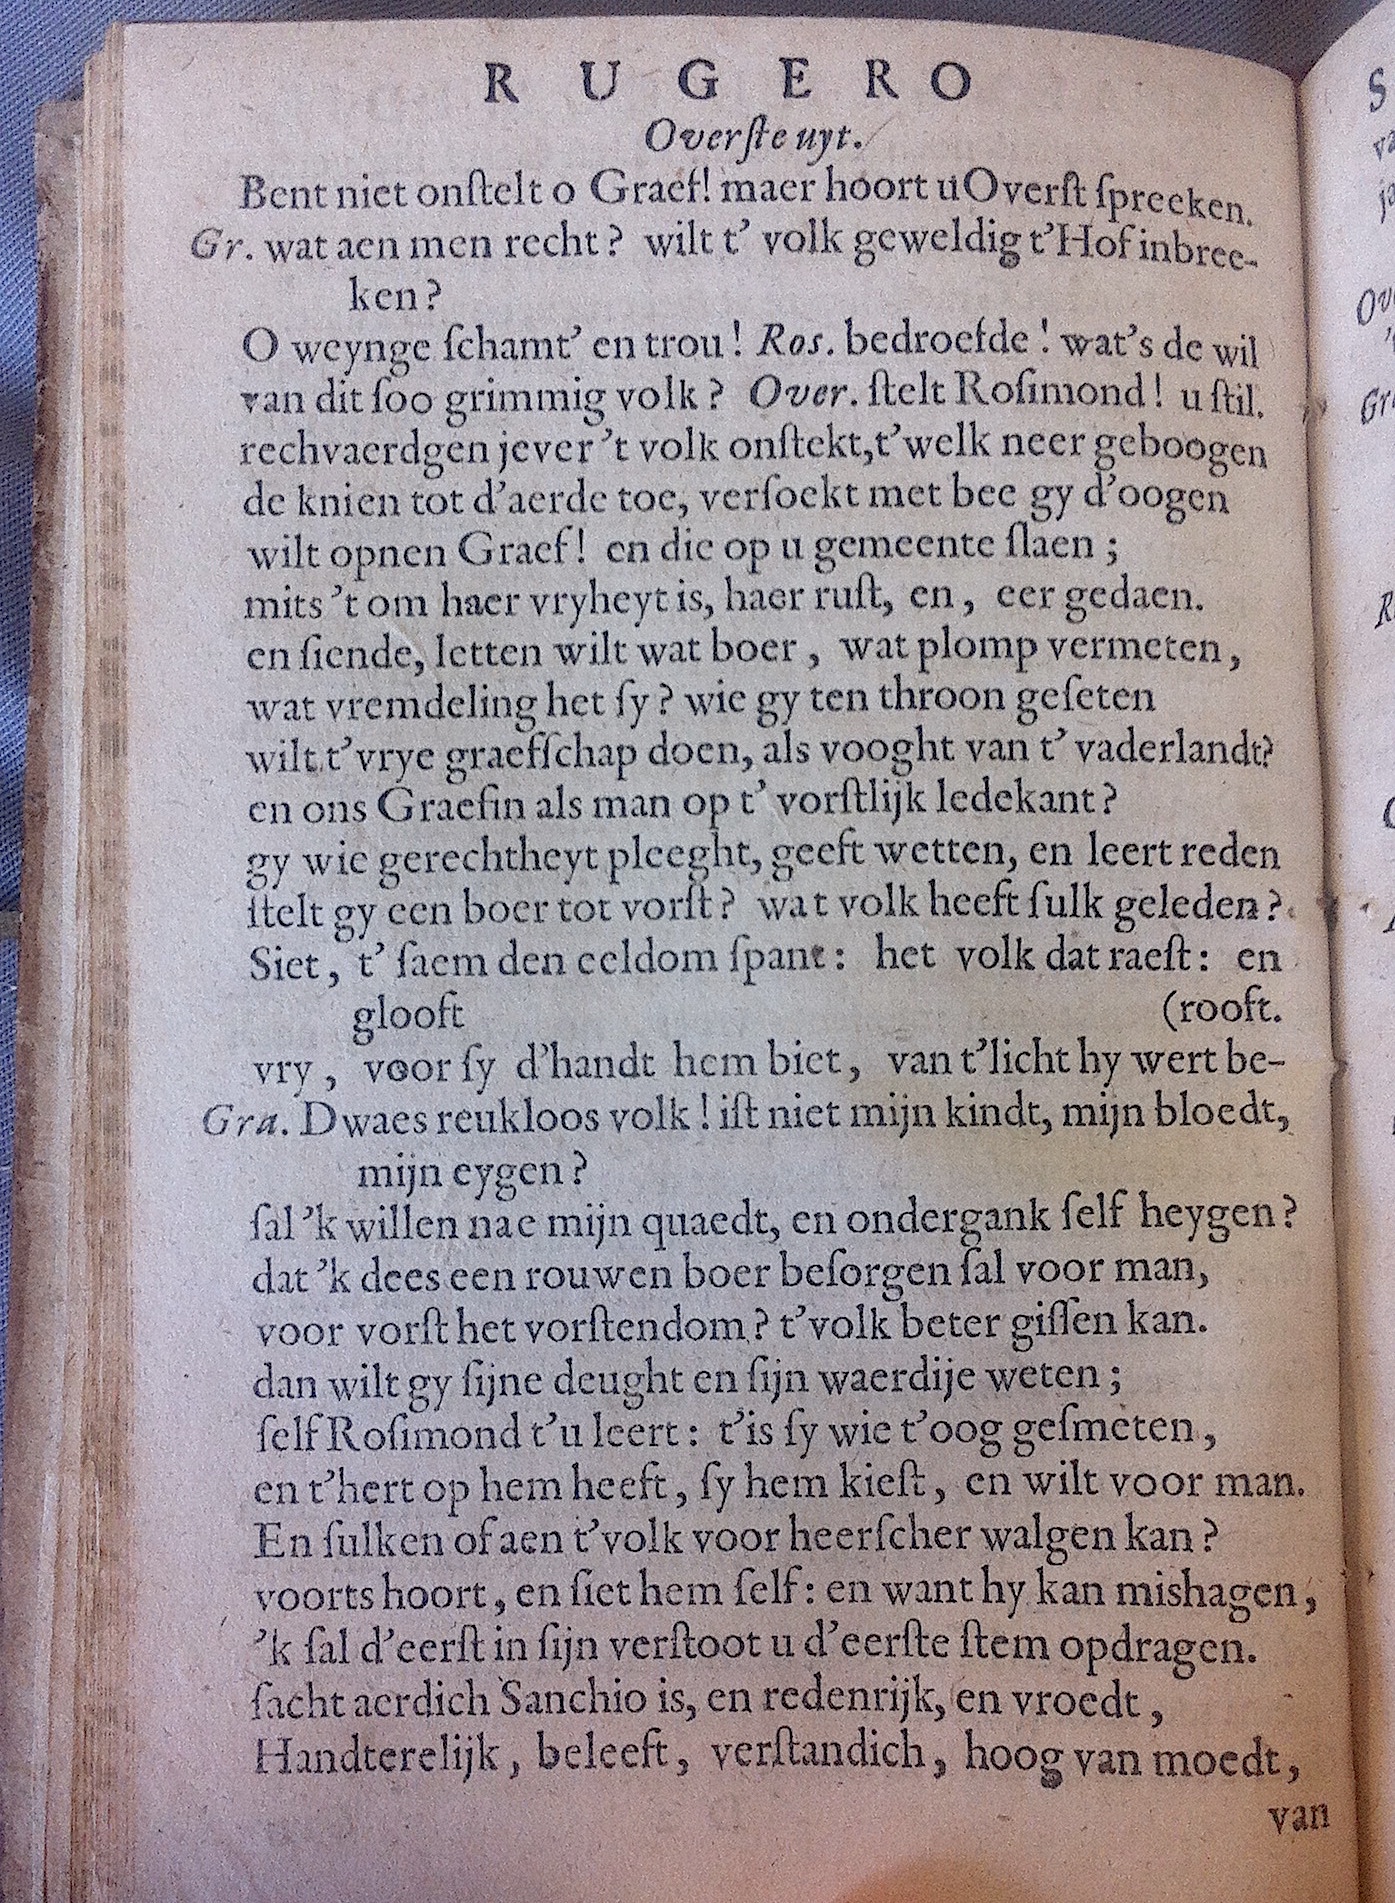 RUGERO
Overſte uyt.
Bent niet onſtelt o Graef! maer hoort u Overſt ſpreeken.
Gr. wat aen men recht? wilt t' volk geweldig t'Hof inbree-
ken?
O weynge ſchamt' en trou! Ros. bedroefde! wat's de wil
van dit ſoo grimmig volk? Over. ſtelt Roſimond! u ſtil.
rechvaerdgen jever 't volk onſtekt, t'welk neer geboogen
de knien tot d'aerde toe, verſoekt met bee gy d'oogen
wilt opnen Graef! en die op u gemeente ſlaen;
mits 't om haer vryheyt is, haer ruſt, en, eer gedaen.
en ſiende, letten wilt wat boer, wat plomp vermeten,
wat vremdeling het ſy? wie gy ten throon geſeten
wilt t'vrye graefſchap doen, als vooght van t' vaderlandt?
en ons Graefin als man op t' vorſtlijk ledekant?
gy wie gerechtheyt pleeght, geeft wetten, en leert reden
ſtelt gy een boer tot vorſt? wat volk heeft ſulk geleden?
Siet, t' ſaem den eeldom ſpant: het volk dat raeſt: en
glooft (rooft.
vry, voor ſy d'handt hem biet, van t'licht hy wert be-
Gra. Dwaes reukloos volk! iſt niet mijn kindt, mijn bloedt,
mijn eygen?
ſal 'k willen nae mijn quaedt, en ondergank ſelf heygen?
dat 'k dees een rouwen boer beſorgen ſal voor man,
voor vorſt het vorſtendom? t'volk beter giſſen kan.
dan wilt gy ſijne deught en ſijn waerdije weten;
ſelf Roſimond t'u leert: t'is ſy wie t'oog geſmeten,
en t'hert op hem heeft, ſy hem kieſt, en wilt voor man.
En ſulken of aen t'volk voor heerſcher walgen kan?
voorts hoort, en ſiet hem ſelf: en want hy kan mishagen,
'k ſal d'eerſt in ſijn verſtoot u d'eerſte ſtem opdragen.
ſacht aerdich Sanchio is, en redenrijk, en vroedt,
Handterelijk, beleeft, verſtandich, hoog van moedt,
van